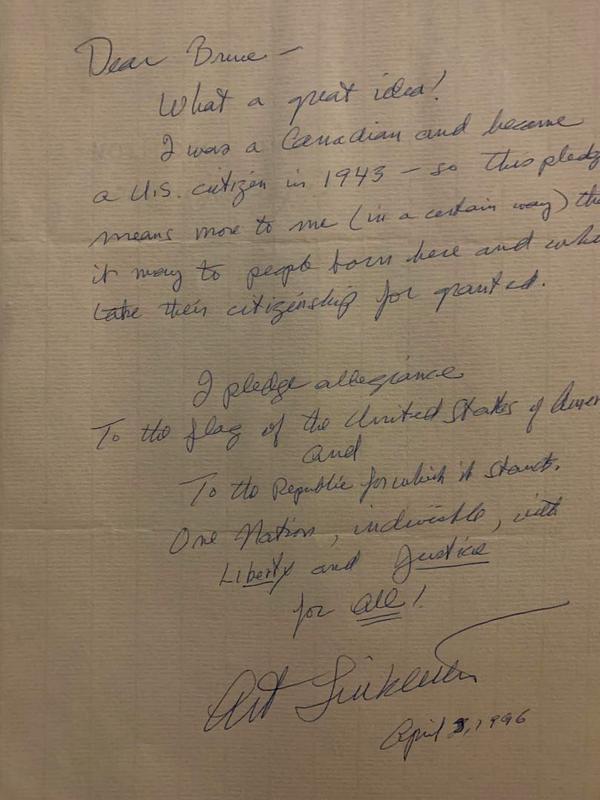 Dear Bruce –
What a great idea!
I was a Canadian and became
a U.S. citizen in 1943 – so this pledg
means more to me (in a certain way) tha
it may to people born here and who
take their citizenship for granted.
I pledge allegiance
To the flag of the United States of Amer
and
To the Republic for which it stands.
One Nation, indivisible, with
Liberty and Justice
for all!
Art Linkletter
April 3, 1996